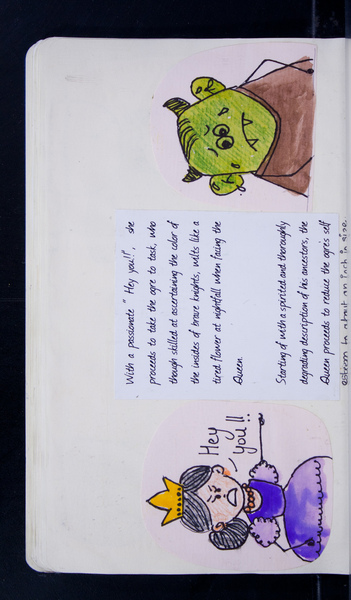 With a passionate " Hey you!!", she
proceeds to take the ogre to task, who
though skilled at ascertaining the color of
the insides of brave knights, wilts like a
tired flower at nightfall when facing the
Queen.
Starting of with a spirited and thoroughly
degrading description of his ancestors, the
Queen proceeds to reduce the ogres self
esteem to about an inch in size.
Hey
you!!